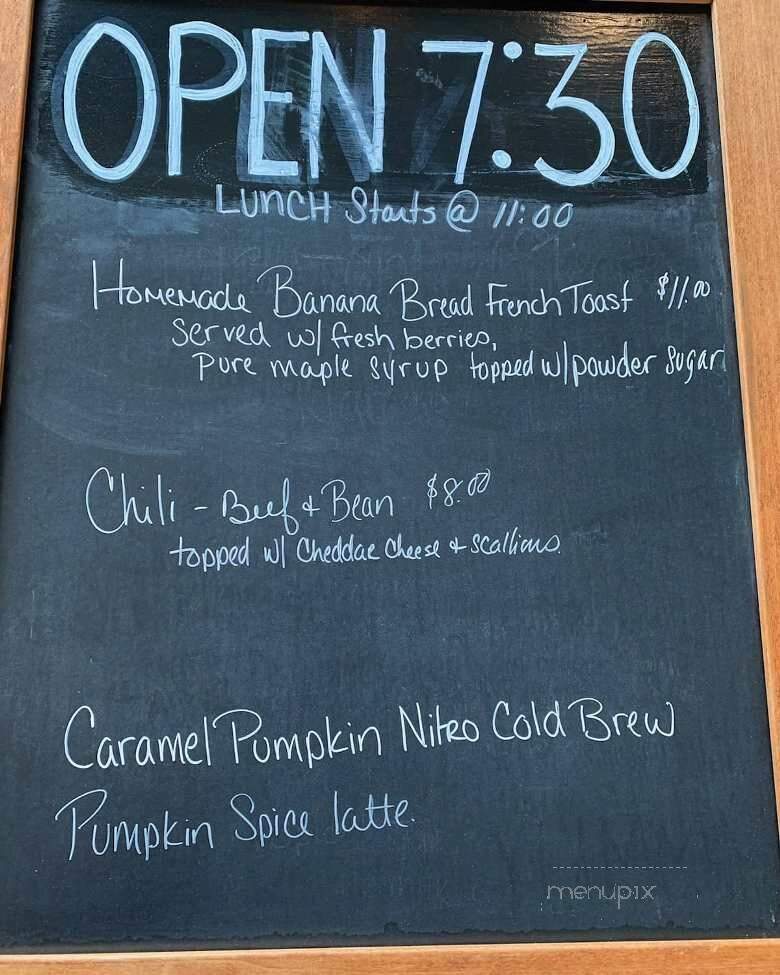 OPEN 7:30
LUNCH Starts @ 11:00
Homemade Banana Bread French Toast $11.00
Served w/ fresh berries,
pure maple syrup topped w/ powder sugar
Chili - Beef + Bean $8.00
topped w/ Cheddar Cheese + Scallions.
Caramel Pumpkin Nitro Cold Brew
Pumpkin Spice latte.
menupix